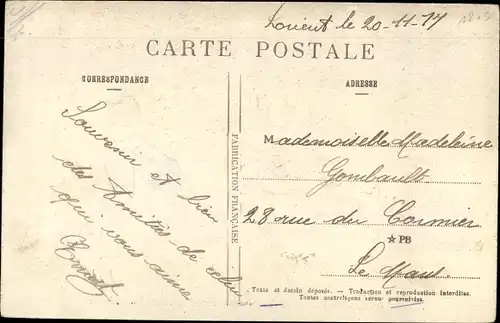 Lorient le 20-11-17
CARTE POSTALE
CORRESPONDANCE
ADRESSE
Souvenir et bien
des Amitiés de celui
qui vous aime
FABRICATION FRANÇAISE
Mademoiselle Madeleine
Gombault
28 rue du Cormier
★PB
Le Mans.
. Texte et dessin déposés. – Traduction et reproduction interdites.
Toutes contrefaçons seront poursuivies.